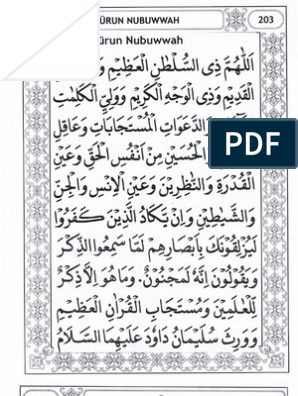 ÛRUN NUBUWWAH 203
ûrun Nubuwwah
اَللّٰهُمَّ ذِى السُّلْطٰنِ الْعَظِيْمِ
الْقَدِيْمِ وَذِى الْوَجْهِ الْكَرِيْمِ وَوَلِيِّ الْكَلِمٰتِ
وَالدَّعَوَاتِ الْمُسْتَجَابَاتِ وَعَاقِلِ
الْحُسَيْنِ مِنْ اَنْفُسِ الْحَقِّ وَعَيْنِ
PDF
الْقُدْرَةِ وَالنَّاظِرِيْنَ وَعَيْنِ الْاِنْسِ وَالْجِنِّ
وَالشَّيَاطِيْنِ وَاِنْ يَّكَادُ الَّذِيْنَ كَفَرُوْا
لَيُزْلِقُوْنَكَ بِاَبْصَارِهِمْ لَمَّا سَمِعُوا الذِّكْرَ
وَيَقُوْلُوْنَ اِنَّهٗ لَمَجْنُوْنٌ. وَمَا هُوَ اِلَّا ذِكْرٌ
لِّلْعٰلَمِيْنَ وَمُسْتَجَابِ الْقُرْاٰنِ الْعَظِيْمِ
وَوَرِثَ سُلَيْمَانُ دَاوٗدَ عَلَيْهِمَا السَّلَامُ